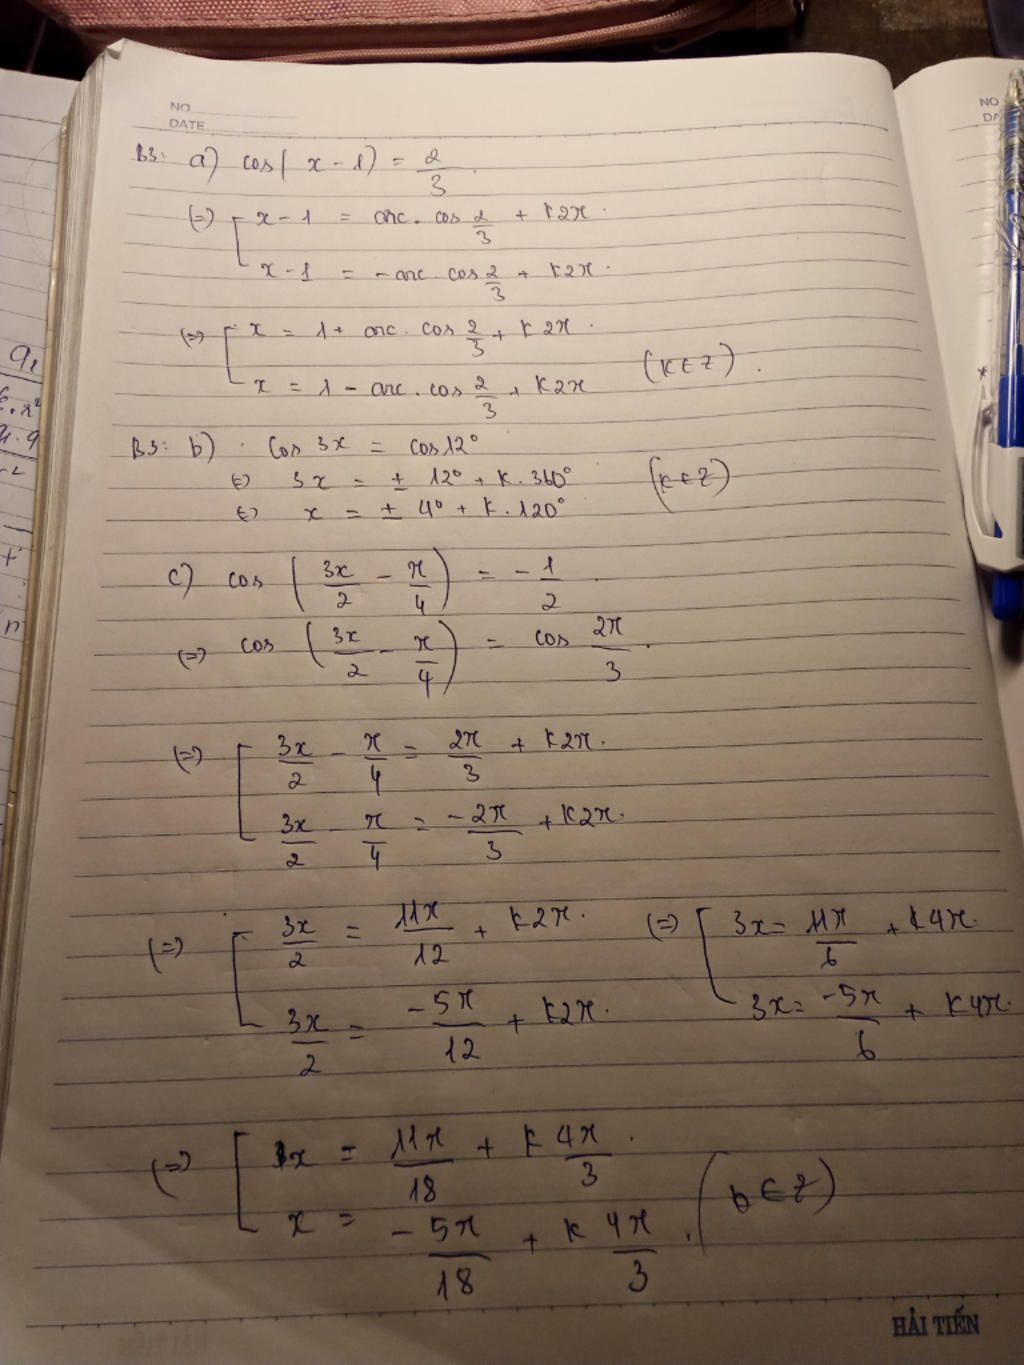 NO
DATE
B3: a) cos( x - 1) = 2/3.
(=) [ x - 1 = arc. cos 2/3 + k2π.
x - 1 = - arc cos 2/3 + k2π.
(=) [ x = 1 + arc. cos 2/3 + k2π.
x = 1 - arc. cos 2/3 + k2π (k∈Z).
B3: b) . Cos 3x = cos12°
(=) 3x = ± 12° + k.360° (k∈Z)
(=) x = ± 4° + k.120°
c) cos (3x/2 - π/4) = - 1/2.
(=) cos (3x/2 - π/4) = cos 2π/3.
(=) [ 3x/2 - π/4 = 2π/3 + k2π.
3x/2 - π/4 = -2π/3 + k2π.
(=) [ 3x/2 = 11π/12 + k2π. (=) [ 3x = 11π/6 + k4π.
3x/2 = -5π/12 + k2π. 3x = -5π/6 + k4π.
(=) [ x = 11π/18 + k 4π/3.
x = -5π/18 + k 4π/3. (k∈Z)
HẢI TIẾN
NO